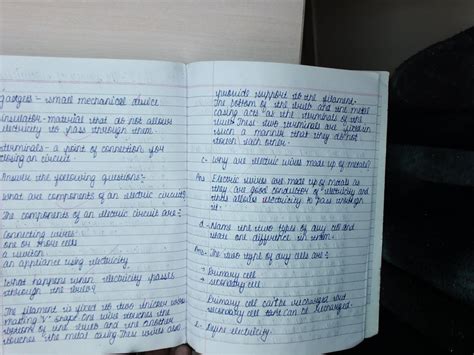 gadgets - small mechanical device
insulator - material that do not allow
electricity to pass through them.
terminals - a point of connection for
closing an circuit.
Answer the following questions:-
what are components of an electric circuit?
The components of an electric circuit are:-
Connecting wires
one or more cells
a switch
an appliance using electricity
What happens when electricity passes
through the bulb?
The filament is fixed to two thicker wires
making 'V' shape one wire touches the
bottom of the bulb and the another
touches the metal casing These wires also
provide support to the filament.
The bottom of the bulb and the metal
casing acts as the terminals of the
bulb. These two terminals are fixed in
such a manner that they do not
touch each other.
c- Why are electric wires made up of metals?
Ans Electric wires are made up of metals as
they are good conductors of electricity and
this allows electricity to pass through
it.
d. Name the two types of any cell and
state one difference in them.
Ans- The two type of any cells are:-
Primary cell
secondary cell
Primary cell can't be recharged and
secondary cell can be recharged.
e. Define electricity.